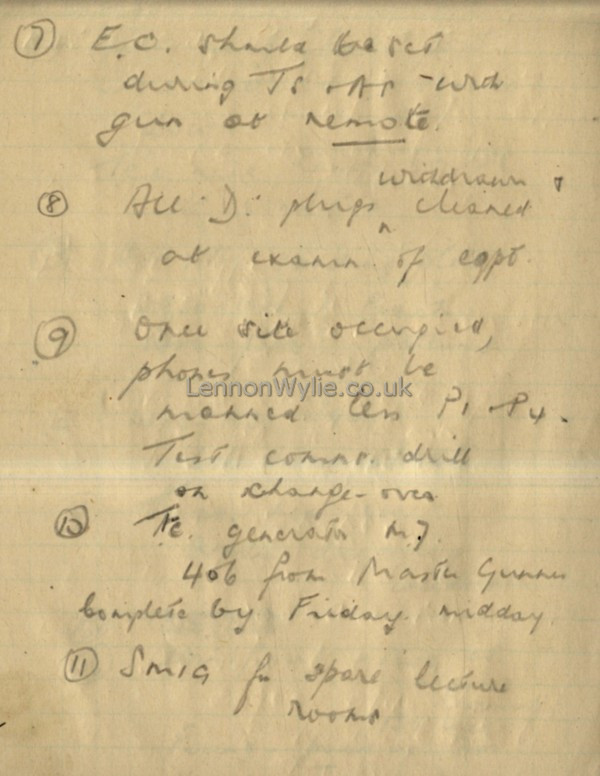 (7) E.O. should be set
during Ts & As - with
gun at remote.
withdrawn &
(8) All D. plugs ^ cleaned
at examn. of eqpt.
(9) Once site occupied,
phones must be
LennonWylie.co.uk
manned less P1 & P4.
Test comms. drill
on xchange-over
(10) generator
406 from Master Gunner
Complete by Friday midday.
(11) for spare lecture
rooms